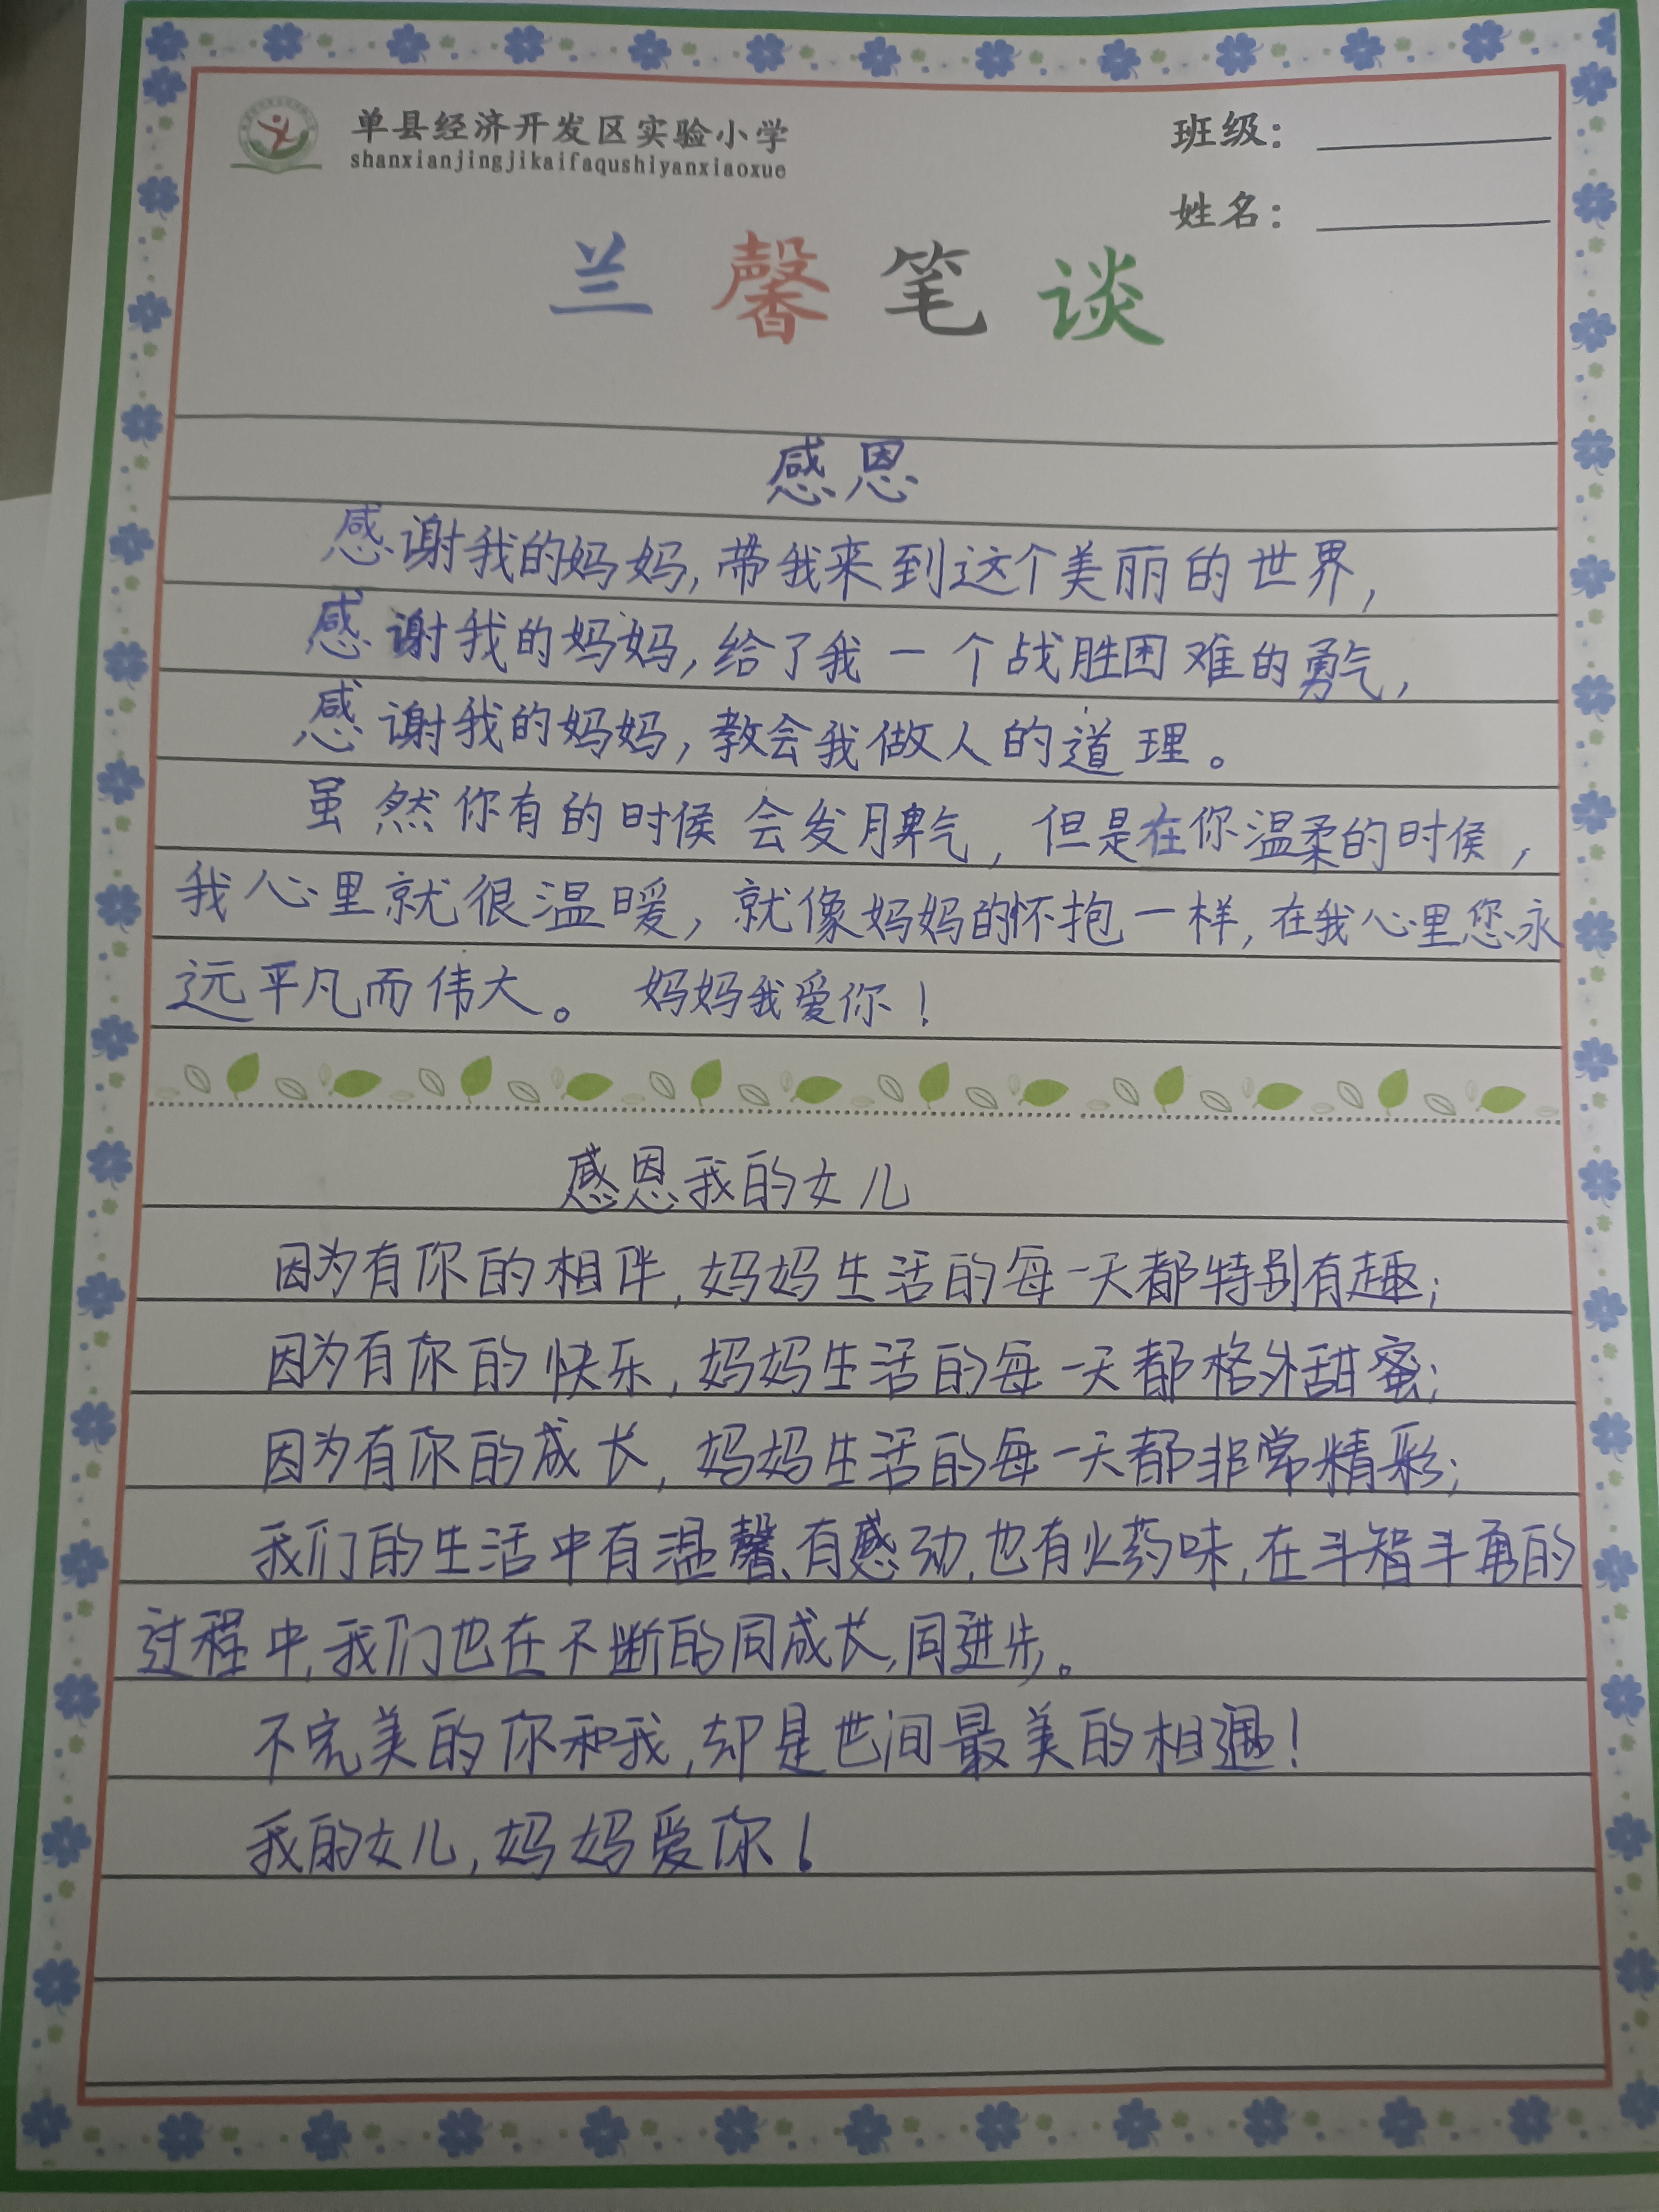 单县经济开发区实验小学
shanxianjingjikaifaqushiyanxiaoxue
班级：
姓名：
兰馨笔谈
感恩
感谢我的妈妈，带我来到这个美丽的世界，
感谢我的妈妈，给了我一个战胜困难的勇气，
感谢我的妈妈，教会我做人的道理。
虽然你有的时候会发脾气，但是在你温柔的时候，
我心里就很温暖，就像妈妈的怀抱一样，在我心里您永
远平凡而伟大。 妈妈我爱你！
感恩我的女儿
因为有你的相伴，妈妈生活的每一天都特别有趣；
因为有你的快乐，妈妈生活的每一天都格外甜蜜；
因为有你的成长，妈妈生活的每一天都非常精彩；
我们的生活中有温馨、有感动，也有火药味，在斗智斗勇的
过程中，我们也在不断的同成长，同进步。
不完美的你和我，却是世间最美的相遇！
我的女儿，妈妈爱你！